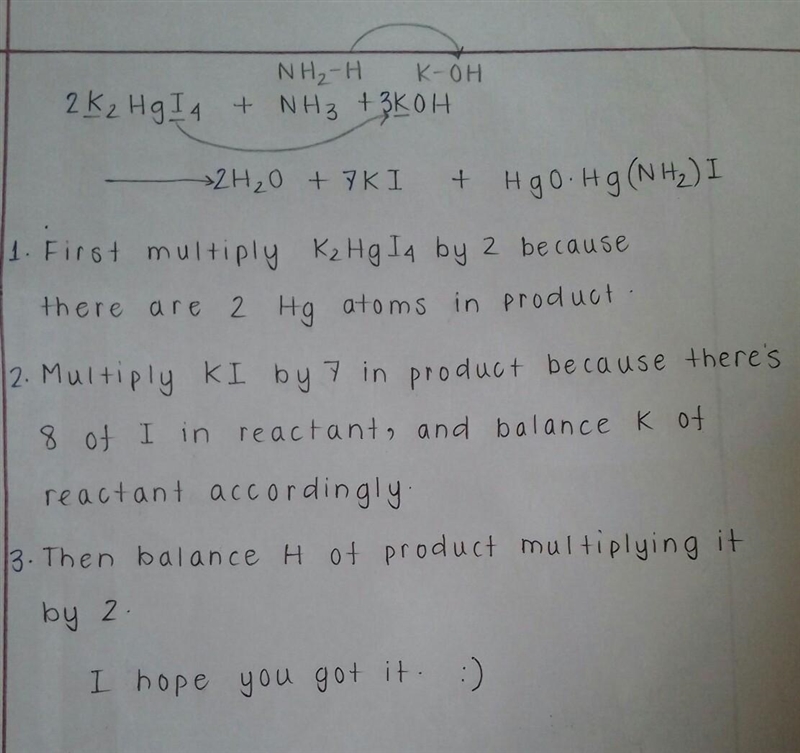 NH₂-H K-OH
2K₂HgI₄ + NH₃ + 3KOH
→ 2H₂O + 7KI + HgO·Hg(NH₂)I
1. First multiply K₂HgI₄ by 2 because
there are 2 Hg atoms in product.
2. Multiply KI by 7 in product because there's
8 of I in reactant, and balance K of
reactant accordingly.
3. Then balance H of product multiplying it
by 2.
I hope you got it. :)